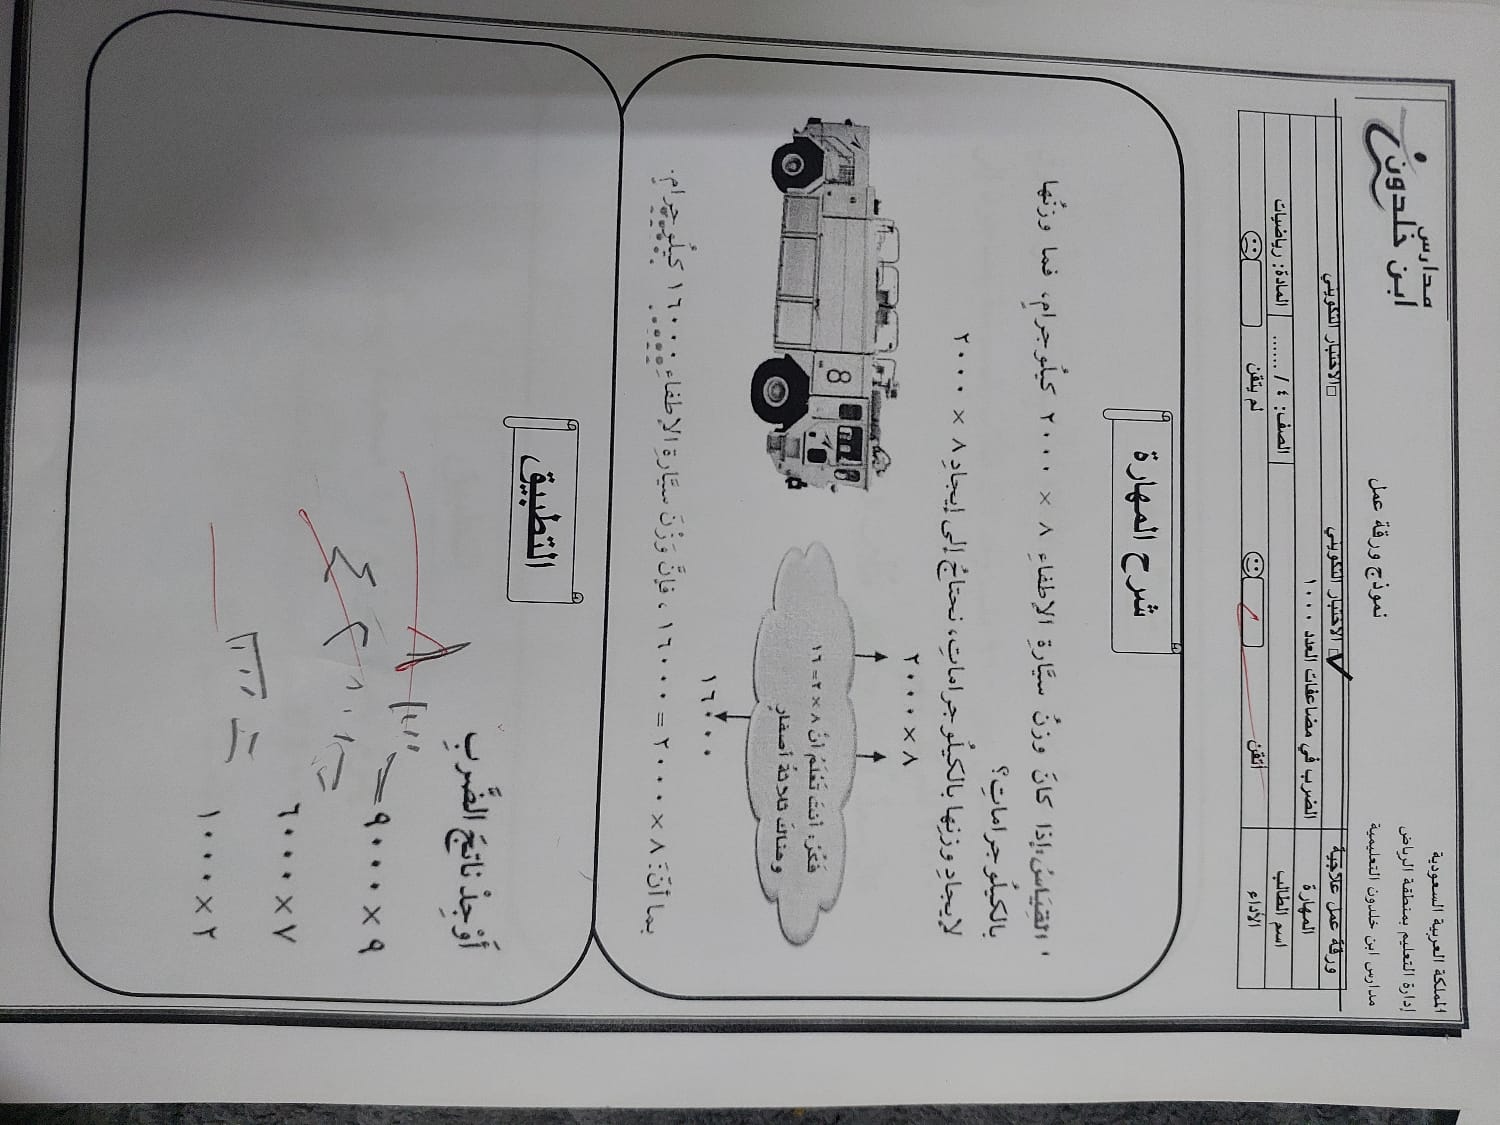 المملكة العربية السعودية
إدارة التعليم بمنطقة الرياض
مدارس ابن خلدون التعليمية
نموذج ورقة عمل
مدارس
ابن خلدون
ورقة عمل علاجية الاختبار التكويني الاختبار التكويني
المهارة الضرب في مضاعفات العدد ١٠٠٠
اسم الطالب الصف: ٤ / ...... المادة: رياضيات
الأداء أتقن لم يتقن
شرح المهارة
القِيَاسُ: إذا كانَ وزنُ سيَّارةِ الإطفاءِ ٨ × ٢٠٠٠ كيلُوجرامٍ، فما وزنُها
بالكيلُوجراماتِ؟
لإيجادِ وزنِها بالكيلُوجراماتِ، نحتاجُ إلى إيجادِ ٨ × ٢٠٠٠
٨ × ٢٠٠٠
فَكِّرْ: أنتَ تَعْلَمُ أنَّ ٨ × ٢ = ١٦
وهناكَ ثلاثةُ أصفارٍ
١٦٠٠٠
8
بما أنَّ: ٨ × ٢٠٠٠ = ١٦٠٠٠، فإنَّ وَزْنَ سيَّارةِ الإطفاءِ ١٦٠٠٠ كيلُوجرامٍ.
التطبيق
أَوْجِدْ ناتجَ الضَّربِ
٩ × ٩٠٠٠ =
٧ × ٦٠٠٠
٢ × ١٠٠٠